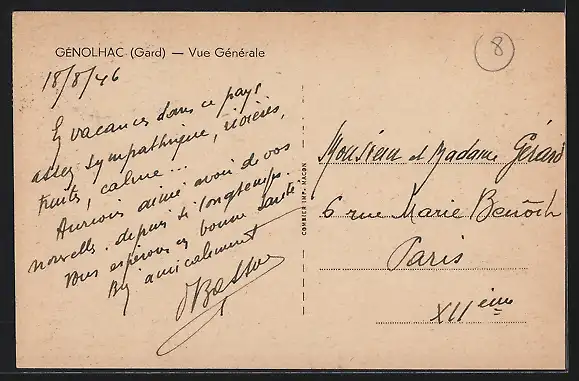 GÉNOLHAC (Gard) — Vue Générale
8
18/8/46
En vacances dans ce pays
assez sympathique, rivières,
truites, calme...
Aurions aimé avoir de vos
nouvelles depuis si longtemps.
Vous espérons en bonne santé
Bien amicalement
COMBIER IMP. MACON
Monsieur et Madame Gérard
6 rue Marie Benoist
Paris
XII ème